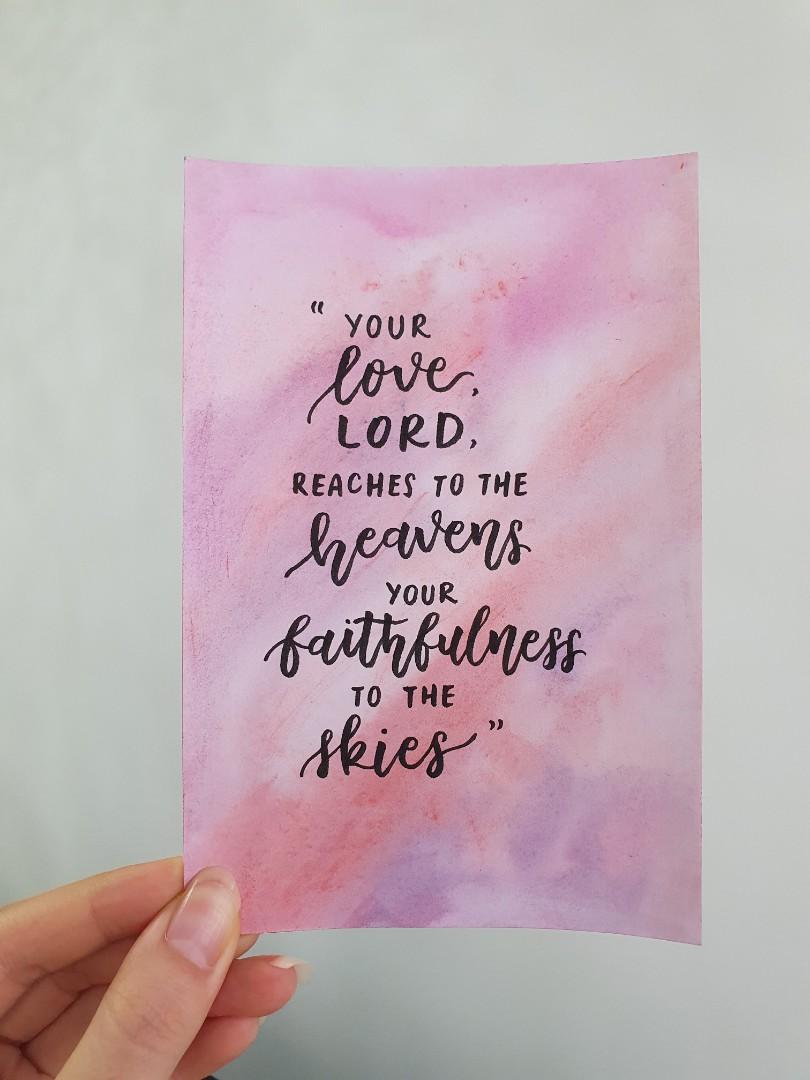 “ YOUR
love,
LORD,
REACHES TO THE
heavens
YOUR
faithfulness
TO THE
skies ”